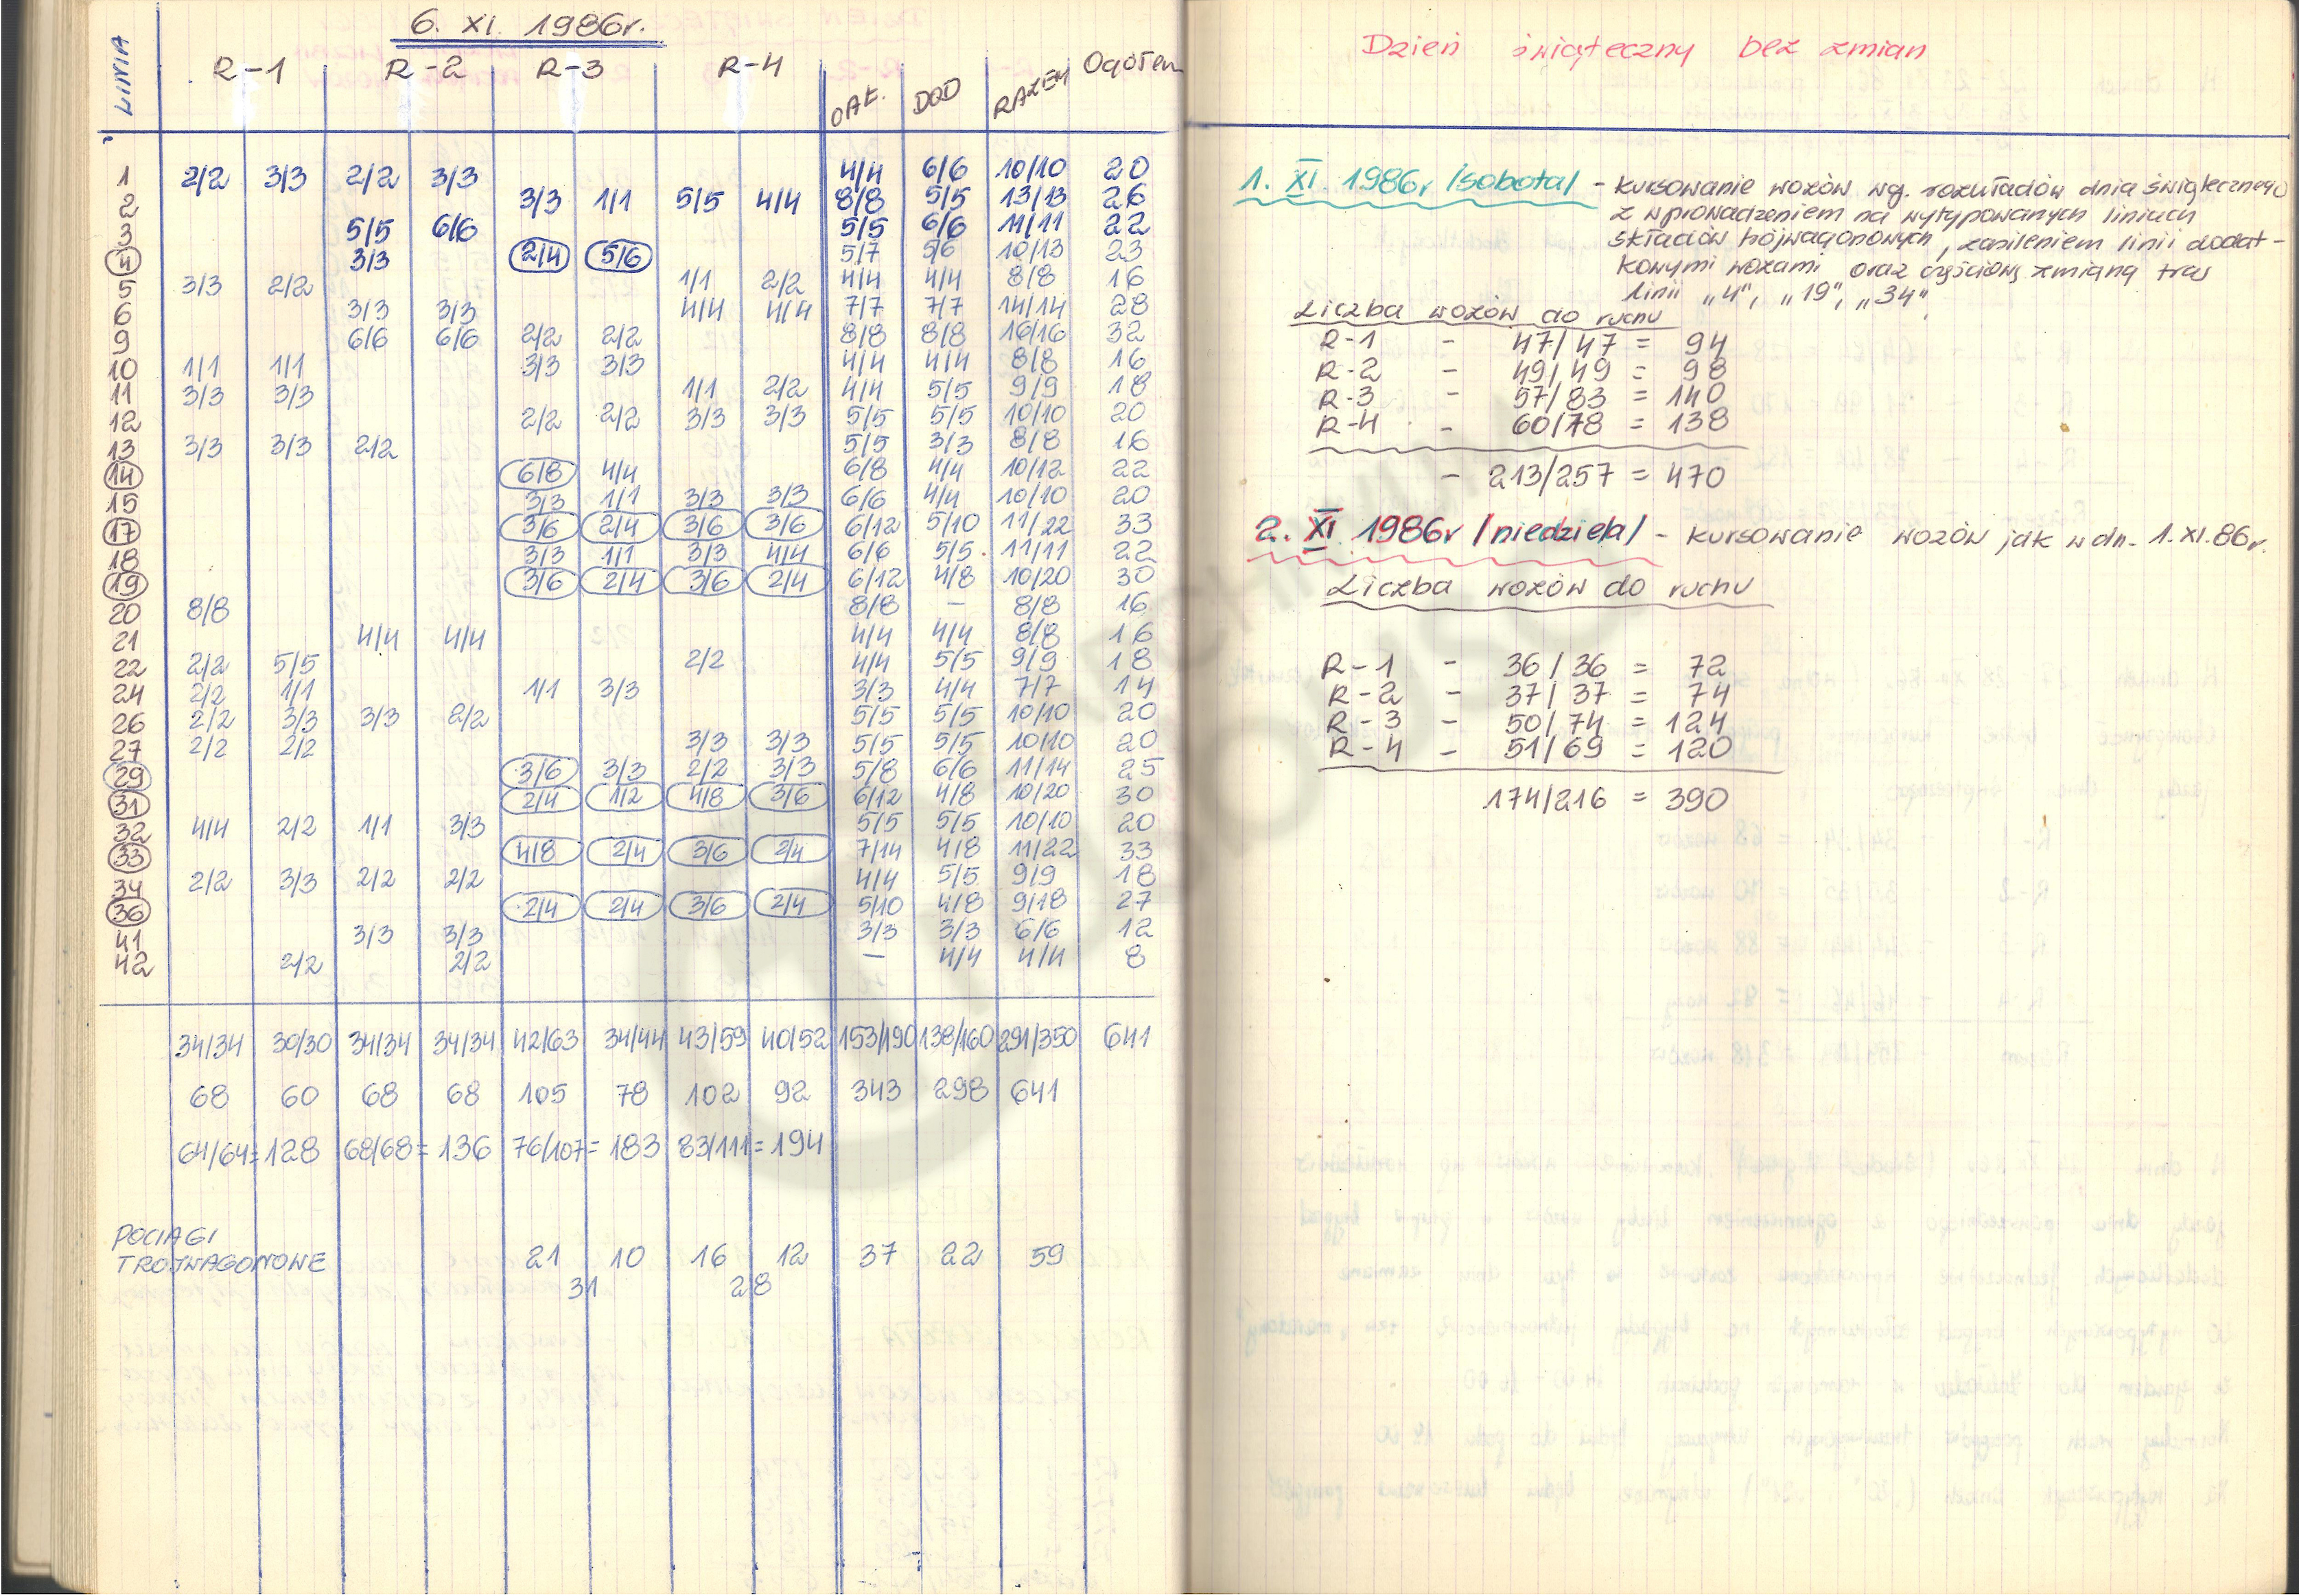 6. XI. 1986r.
LINIA R-1 R-2 R-3 R-4 CAŁ. DOD RAZEM Ogółem
1 2/2 3/3 2/2 3/3 4/4 6/6 10/10 20
2 3/3 1/1 5/5 4/4 8/8 5/5 13/13 26
3 5/5 6/6 5/5 6/6 11/11 22
4 3/3 2/4 5/6 5/7 5/6 10/13 23
5 3/3 2/2 1/1 2/2 4/4 4/4 8/8 16
6 3/3 3/3 4/4 4/4 7/7 7/7 14/14 28
9 6/6 6/6 2/2 2/2 8/8 8/8 16/16 32
10 1/1 1/1 3/3 3/3 4/4 4/4 8/8 16
11 3/3 3/3 1/1 2/2 4/4 5/5 9/9 18
12 2/2 2/2 3/3 3/3 5/5 5/5 10/10 20
13 3/3 3/3 2/2 5/5 3/3 8/8 16
14 6/8 4/4 6/8 4/4 10/12 22
15 3/3 1/1 3/3 3/3 6/6 4/4 10/10 20
17 3/6 2/4 3/6 3/6 6/12 5/10 11/22 33
18 3/3 1/1 3/3 4/4 6/6 5/5 11/11 22
19 3/6 2/4 3/6 2/4 6/12 4/8 10/20 30
20 8/8 8/8 - 8/8 16
21 4/4 4/4 4/4 4/4 8/8 16
22 2/2 5/5 2/2 4/4 5/5 9/9 18
24 2/2 1/1 1/1 3/3 3/3 4/4 7/7 14
26 2/2 3/3 3/3 2/2 5/5 5/5 10/10 20
27 2/2 2/2 3/3 3/3 5/5 5/5 10/10 20
29 3/6 3/3 2/2 3/3 5/8 6/6 11/14 25
31 2/4 1/2 4/8 3/6 6/12 4/8 10/20 30
32 4/4 2/2 1/1 3/3 5/5 5/5 10/10 20
33 4/8 2/4 3/6 2/4 7/14 4/8 11/22 33
34 2/2 3/3 2/2 2/2 4/4 5/5 9/9 18
36 2/4 2/4 3/6 2/4 5/10 4/8 9/18 27
41 3/3 3/3 3/3 3/3 6/6 12
42 2/2 2/2 - 4/4 4/4 8
34/34 30/30 34/34 34/34 42/63 34/44 43/59 40/52 153/190 138/160 291/350 641
68 60 68 68 105 78 102 92 343 298 641
64/64=128 68/68=136 76/107=183 83/111=194
POCIAGI
TROJWAGONOWE 21 10 16 12 37 22 59
31 28
Dzień świąteczny bez zmian
1. XI. 1986r /sobota/ - kursowanie wozów wg. rozkładów dnia świątecznego
z wprowadzeniem na wytypowanych liniach
składów trójwagonowych, zasileniem linii dodat-
kowymi wozami oraz częściową zmianą tras
linii „4", „19", „34".
Liczba wozów do ruchu
R-1 - 47/47 = 94
R-2 - 49/49 = 98
R-3 - 57/83 = 140
R-4 - 60/78 = 138
- 213/257 = 470
2. XI 1986r /niedziela/ - kursowanie wozów jak w dn. 1.XI.86r.
Liczba wozów do ruchu
R-1 - 36/36 = 72
R-2 - 37/37 = 74
R-3 - 50/74 = 124
R-4 - 51/69 = 120
174/216 = 390